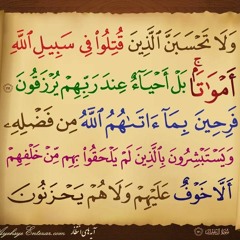 وَلَا تَحْسَبَنَّ الَّذِينَ قُتِلُوا فِي سَبِيلِ اللَّهِ
أَمْوَاتًا ۚ بَلْ أَحْيَاءٌ عِندَ رَبِّهِمْ يُرْزَقُونَ
فَرِحِينَ بِمَا آتَاهُمُ اللَّهُ مِن فَضْلِهِ
وَيَسْتَبْشِرُونَ بِالَّذِينَ لَمْ يَلْحَقُوا بِهِم مِّنْ خَلْفِهِمْ
أَلَّا خَوْفٌ عَلَيْهِمْ وَلَا هُمْ يَحْزَنُونَ
Ayehaye Entezar.com آیه‌های انتظار